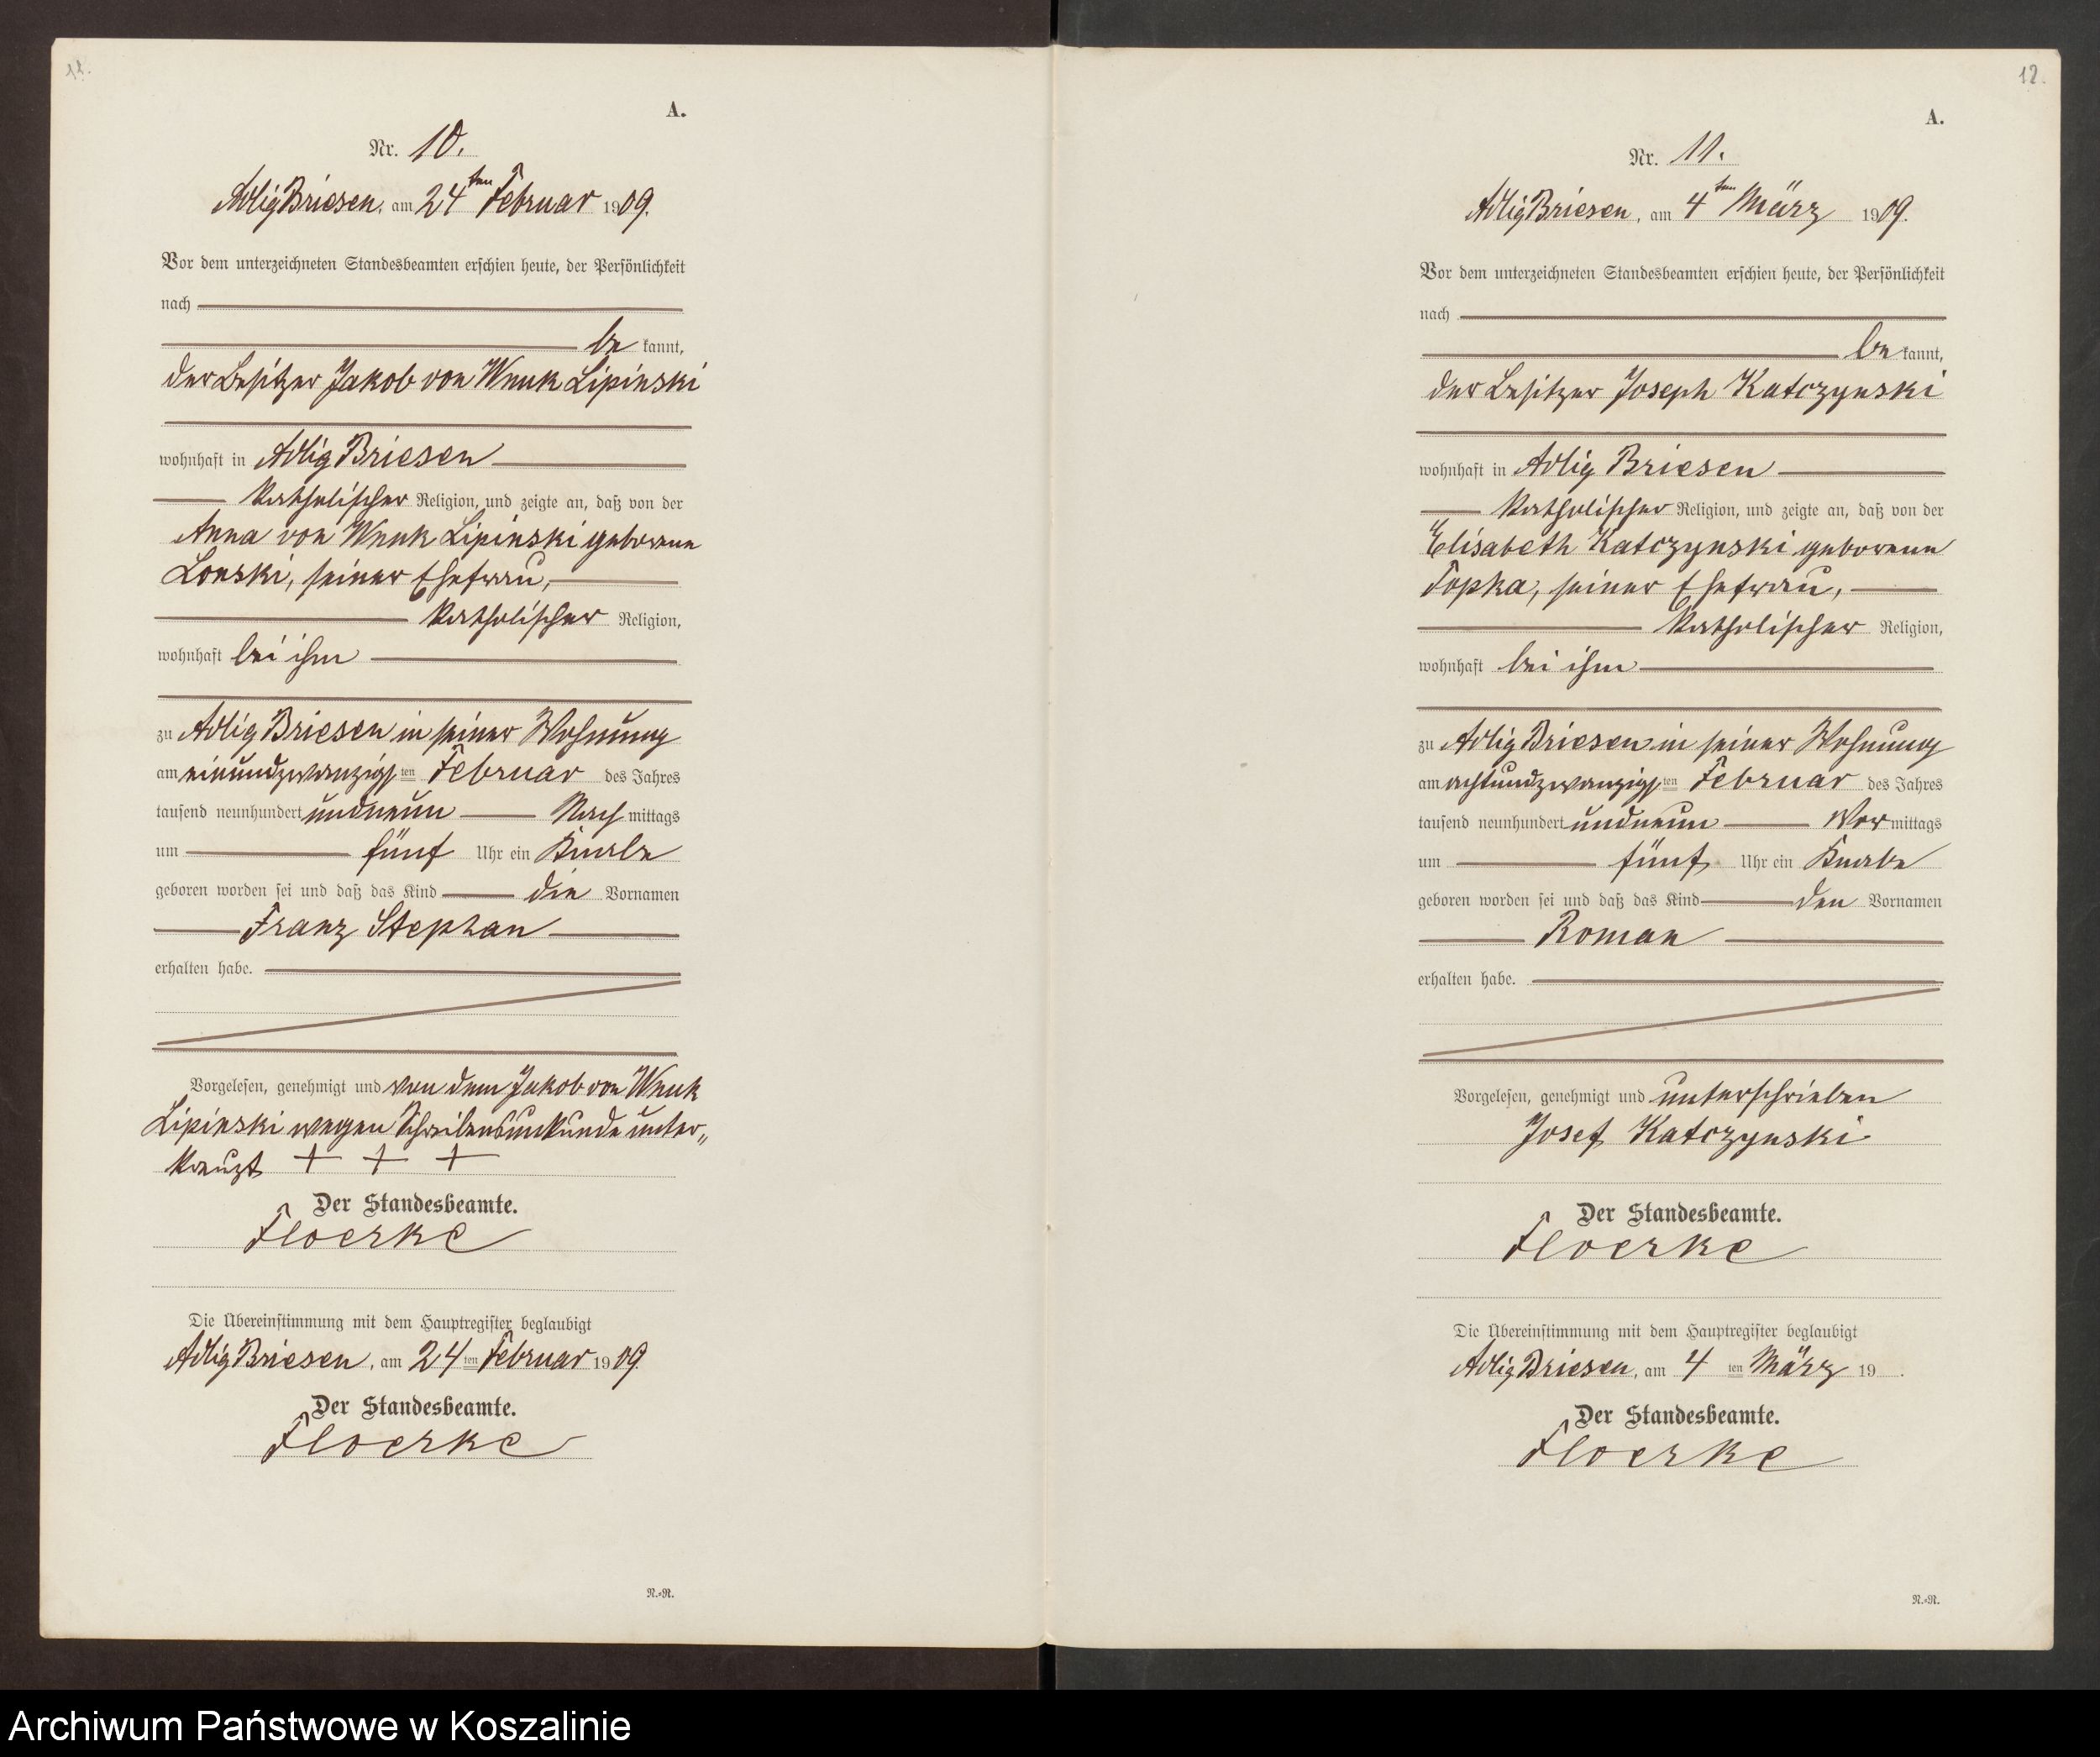 11.
A.
Nr. 10.
Adlig Briesen, am 24ten Februar 1909.
Vor dem unterzeichneten Standesbeamten erschien heute, der Persönlichkeit
nach
be kannt,
der Besitzer Jakob von Wnuk Lipinski
wohnhaft in Adlig Briesen
katholischer Religion, und zeigte an, daß von der
Anna von Wnuk Lipinski geborene
Lonski, seiner Ehefrau,
katholischer Religion,
wohnhaft bei ihm
zu Adlig Briesen in seiner Wohnung
am einundzwanzigsten Februar des Jahres
tausend neunhundert undneun Nach mittags
um fünf Uhr ein Knabe
geboren worden sei und daß das Kind die Vornamen
Franz Stephan
erhalten habe.
Vorgelesen, genehmigt und von dem Jakob von Wnuk
Lipinski wegen Schreibensunkunde unter„
kreuzt + + +
Der Standesbeamte.
Floerke
Die Übereinstimmung mit dem Hauptregister beglaubigt
Adlig Briesen, am 24ten Februar 1909
Der Standesbeamte.
Floerke
N.=N.
12.
A.
Nr. 11.
Adlig Briesen, am 4ten März 1909.
Vor dem unterzeichneten Standesbeamten erschien heute, der Persönlichkeit
nach
be kannt,
der Besitzer Joseph Katczynski
wohnhaft in Adlig Briesen
katholischer Religion, und zeigte an, daß von der
Elisabeth Katczynski geborene
Topka, seiner Ehefrau,
katholischer Religion,
wohnhaft bei ihm
zu Adlig Briesen in seiner Wohnung
am achtundzwanzigsten Februar des Jahres
tausend neunhundert undneun Vor mittags
um fünf Uhr ein Knabe
geboren worden sei und daß das Kind den Vornamen
Roman
erhalten habe.
Vorgelesen, genehmigt und unterschrieben
Josef Katczynski
Der Standesbeamte.
Floerke
Die Übereinstimmung mit dem Hauptregister beglaubigt
Adlig Briesen, am 4ten März 19 .
Der Standesbeamte.
Floerke
N.=N.
Archiwum Państwowe w Koszalinie